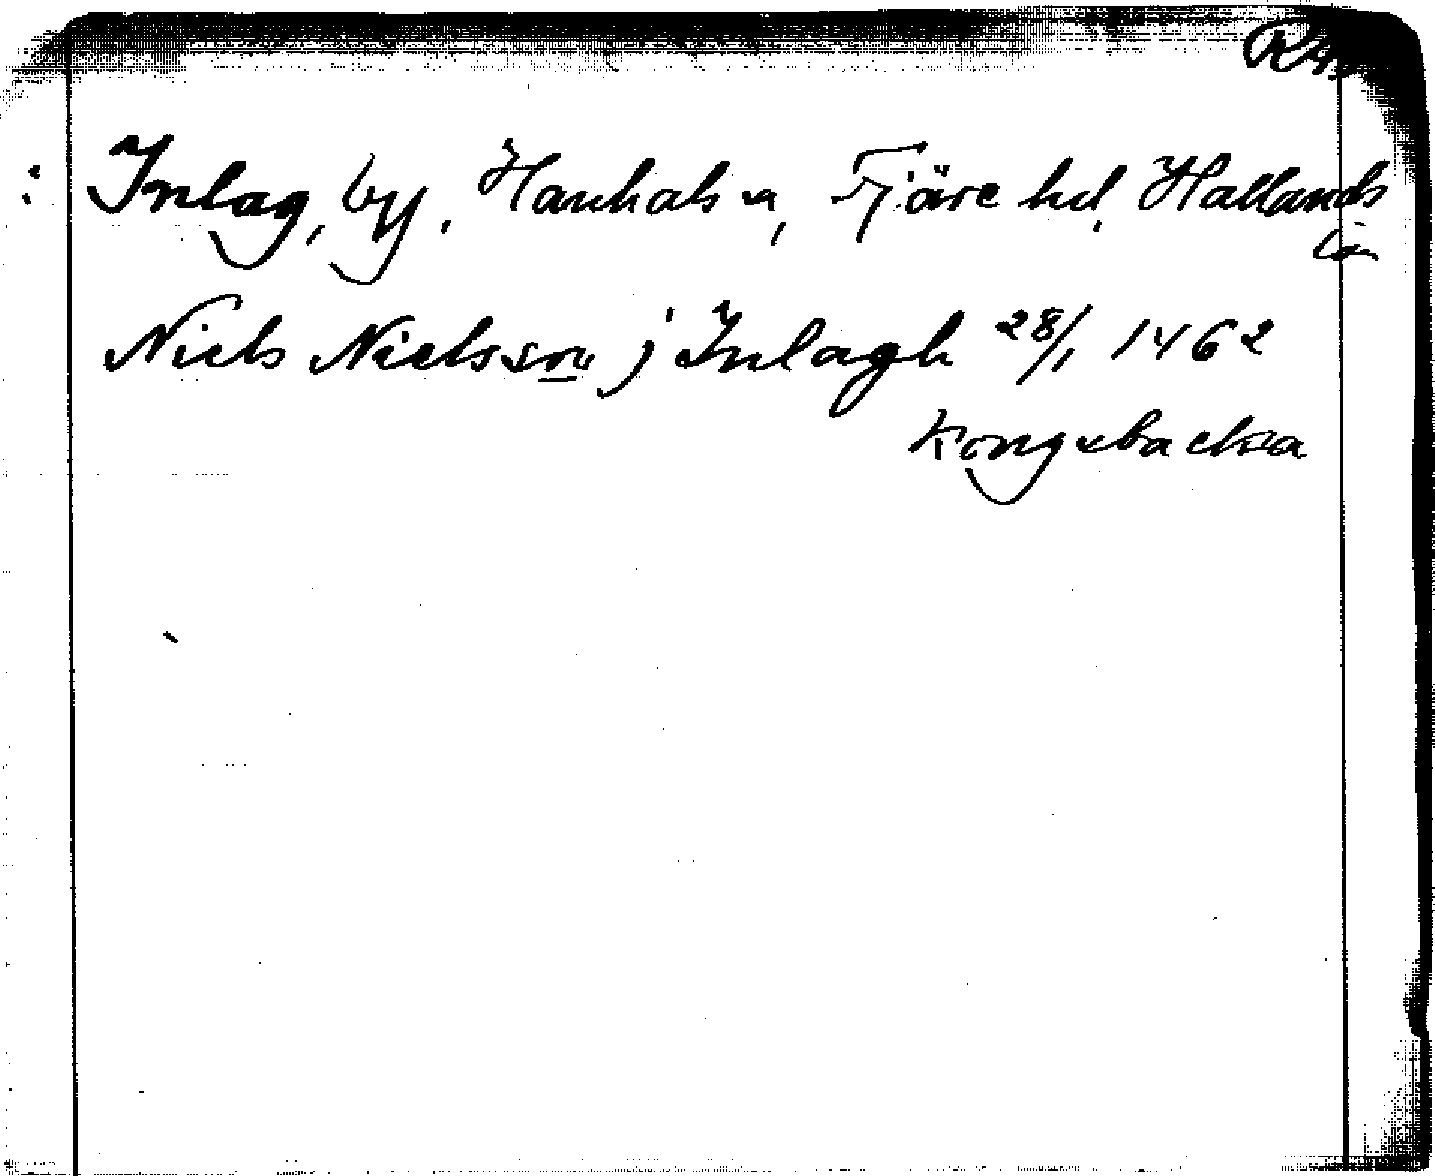 : Inlag, by, Hanhals sn, Fjäre hd, Hallands
län
Niels Nielsson j Inlagh 28/1 1462
Kongxbacka